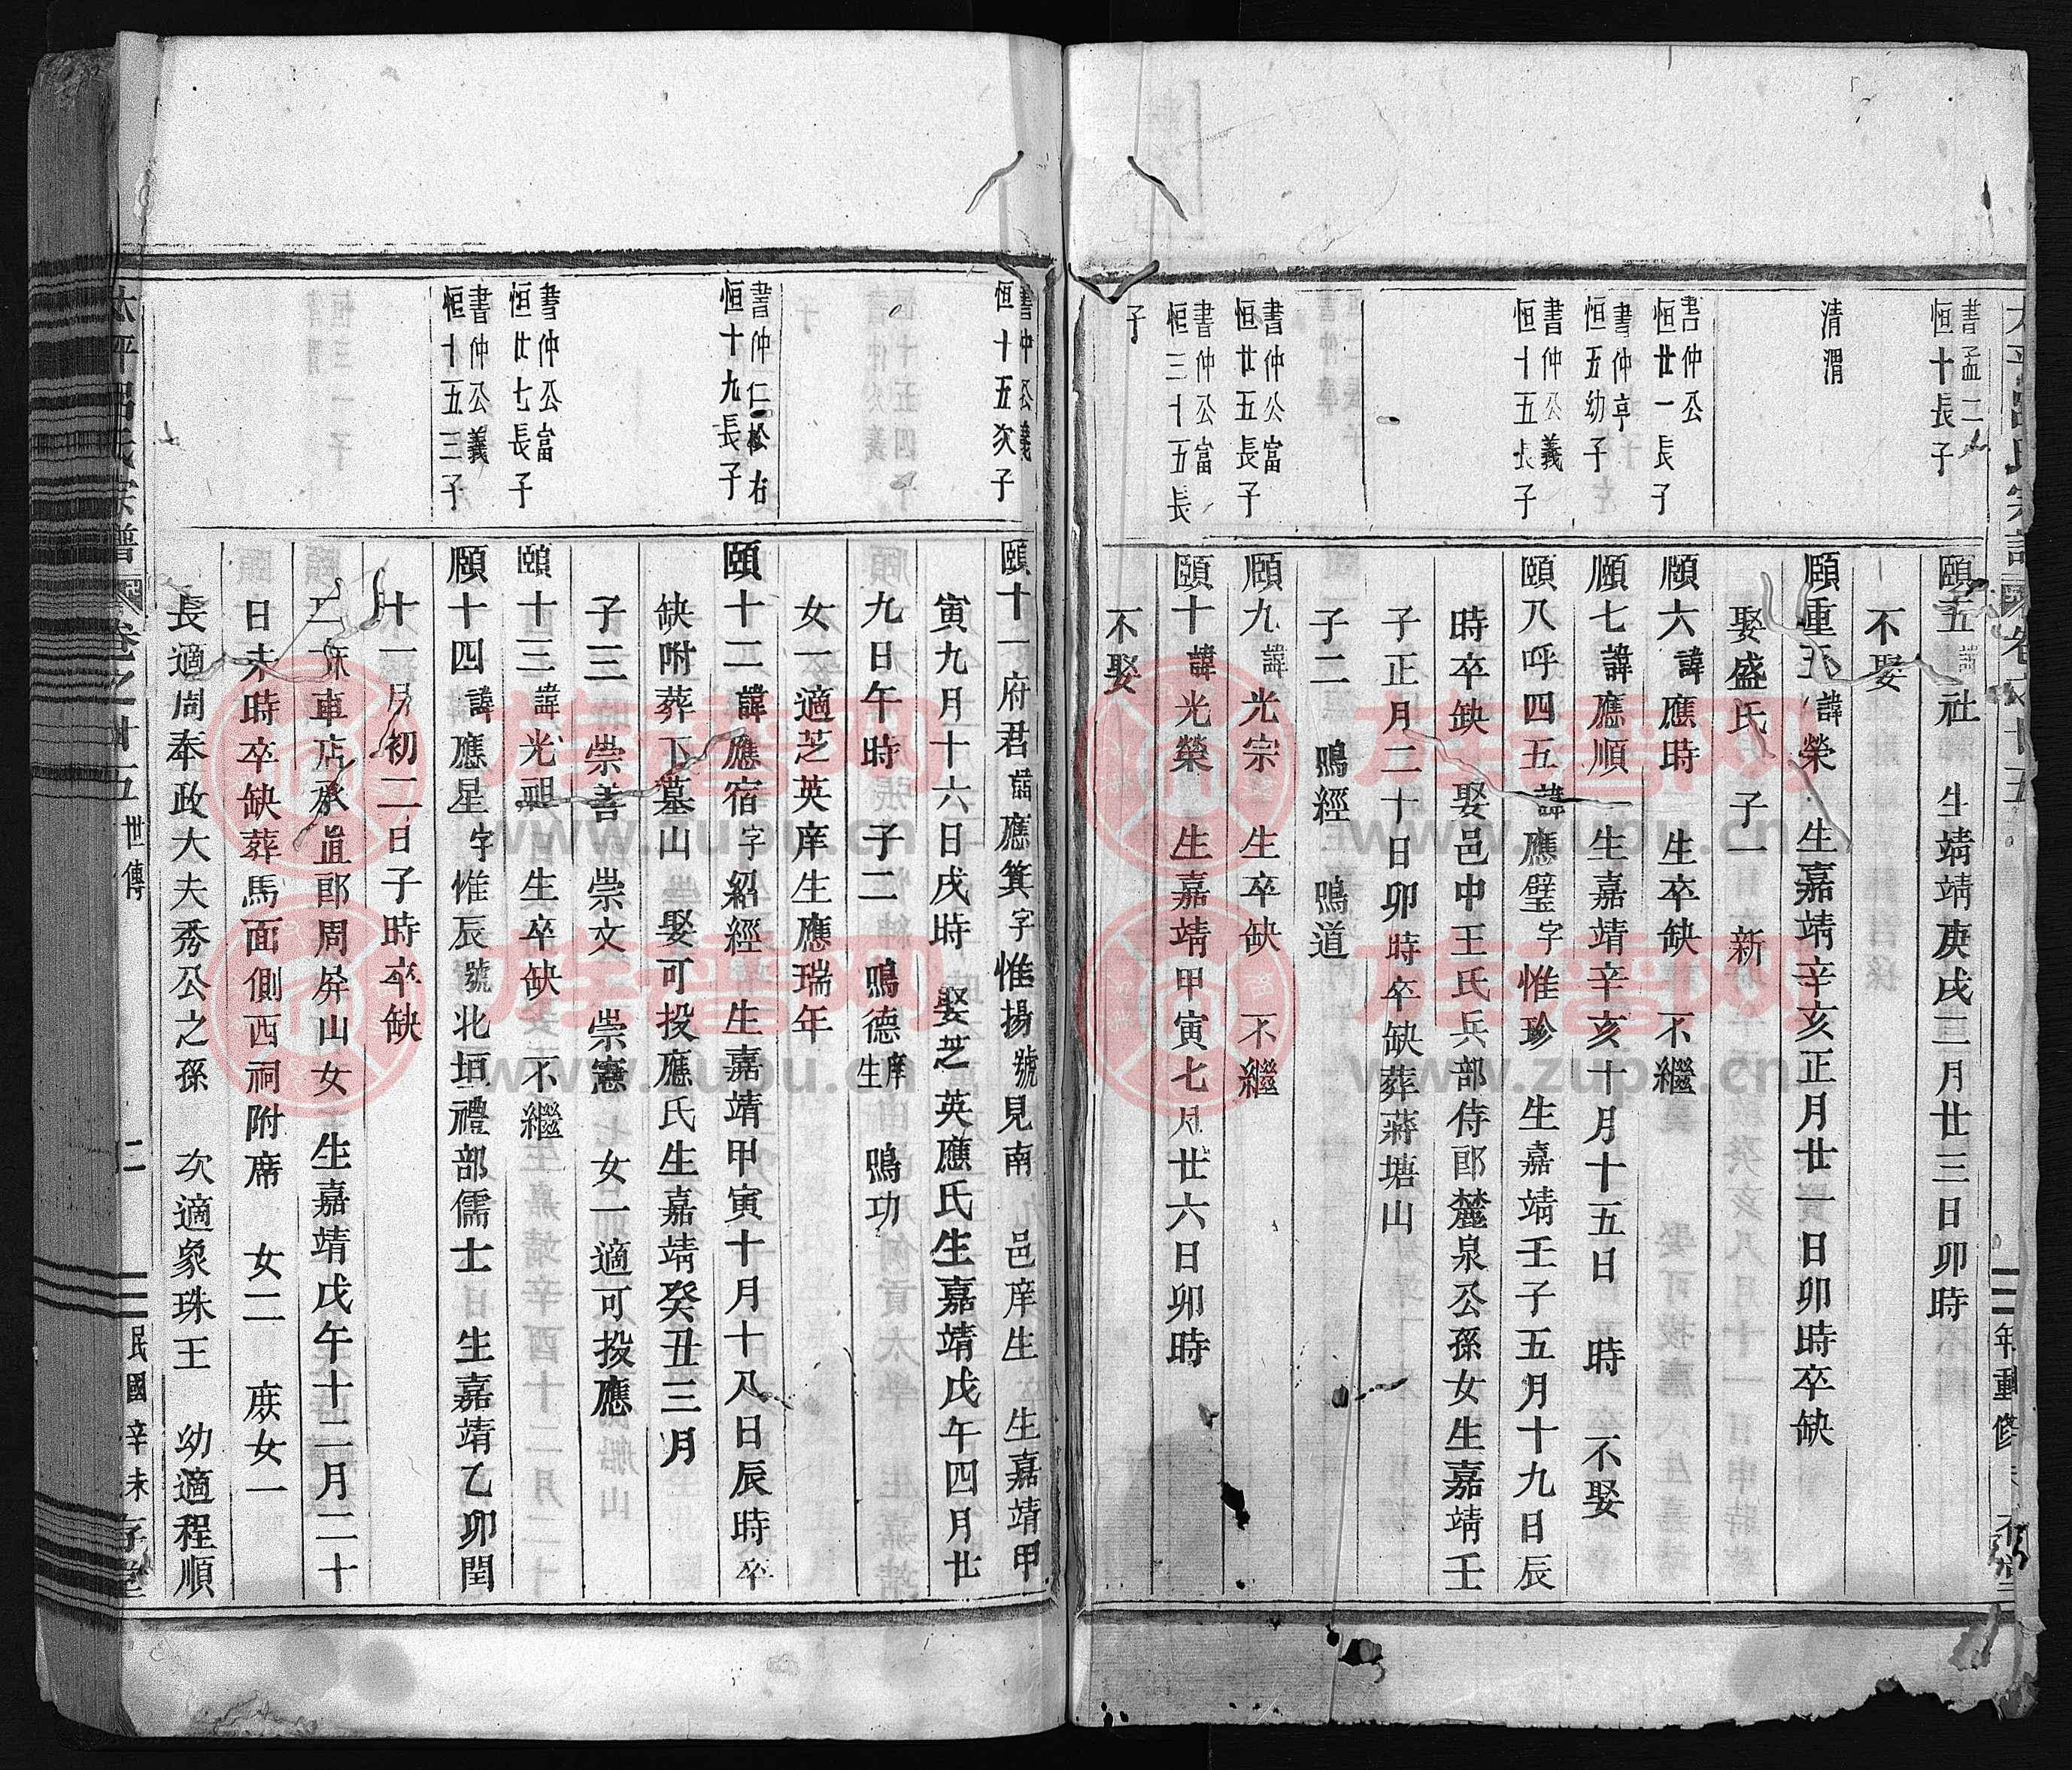 書孟二
恒十長子
頤五諱社 生靖靖庚戌三月廿三日卯時
不娶
清渭
頤重五諱榮 生嘉靖辛亥正月廿一日卯時卒缺
娶盛氏 子一 新
書仲公
恒廿一長子
頤六諱應時 生卒缺 不繼
書仲亨
恒五幼子
頤七諱應順 生嘉靖辛亥十月十五日 時 不娶
書仲公義
恒十五長子
頤八呼四五諱應璧字惟珍 生嘉靖壬子五月十九日辰
時卒缺 娶邑中王氏兵部侍郎麓泉公孫女生嘉靖壬
子正月二十日卯時卒缺葬蔣塘山
子二 鳴經 鳴道
書仲公富
恒廿五長子
頤九諱光宗 生卒缺 不繼
書仲公富
恒三十五長
子
頤十諱光榮 生嘉靖甲寅七月廿六日卯時
不娶
書仲公義
恒十五次子
頤十一府君諱應箕字惟揚號見南 邑庠生 生嘉靖甲
寅九月十六日戌時 娶芝英應氏生嘉靖戊午四月廿
九日午時 子二 鳴德庠生 鳴功
女一適芝英庠生應瑞年
書仲仁松右
恒十九長子
頤十二諱應宿字紹經 生嘉靖甲寅十月十八日辰時卒
缺附葬下墓山 娶可投應氏生嘉靖癸丑三月
子三 崇善 崇文 崇憲 女一適可投應
書仲公富
恒廿七長子
頤十三諱光祖 生卒缺 不繼
書仲公義
恒十五三子
頤十四諱應星字惟辰號北垣禮部儒士 生嘉靖乙卯閏
十一月初二日子時卒缺
車店承直郎周屏山女 生嘉靖戊午十二月二十
日未時卒缺葬馬面側西祠附席 女二 庶女一
長適周奉政大夫秀公之孫 次適象珠王 幼適程順
太平呂氏宗譜 卷之十五 世傳 民國辛未
年重修
www.zupu.cn
族譜网
www.zupu.cn
族譜网
www.zupu.cn
族譜网
www.zupu.cn
族譜网